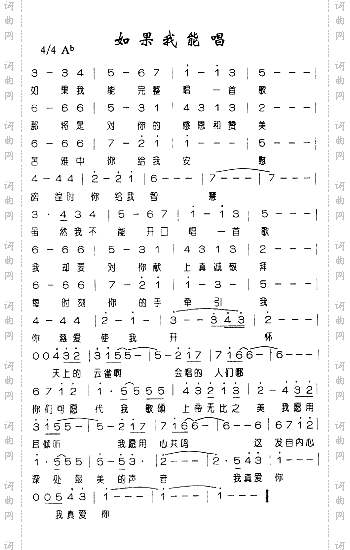 如果我能唱
4/4 Ab
3 - 3 4 | 5 - 6 7 | 1 - 1 3 | 5 - - - |
如 果我 能 完整 唱 一首 歌
6 - 6 5 | 5 - 3 1 | 4 3 1 3 | 2 - - - |
那 将是 对 你的 感恩和赞 美
6 - 6 6 | 7 - 2 1 | 1 - - 5 | 5 - - - |
苦 难中 你 给我 安 慰
4 - 4 4 | 2 - 2 1 | 6 - - - | 7 - - - | 7 - - - |
彷 徨时 你 给我 智 慧
3 · 4 3 4 | 5 - 6 7 | 1 - 1 3 | 5 - - - |
虽 然我不 能 开口 唱 一首 歌
6 - 6 5 | 5 - 3 1 | 4 3 1 3 | 2 - - - |
我 却要 对 你献 上真诚敬 拜
6 - 6 6 | 7 - 2 1 | 1 - 1 3 | 3 - - - |
每 时刻 你 的手 牵 引 我
4 - 4 4 | 2 - 2 1 | 1 - - - | 3 - - 3 4 3 | 2 - - - |
你 慈爱 使 我 开 怀
0 0 4 3 2 | 3 1 5 5 - | 5 - 2 1 7 | 7 1 6 6 - |
天上的 云雀啊 会唱的 人们哪
6 - 7 1 2 | 1 · 5 5 5 5 | 4 3 2 3 1 2 | 2 - 4 3 2 |
你们可愿 代 我 歌颂 上帝无比之 美 我愿用
3 1 5 5 - | 5 - 2 1 7 | 7 1 6 6 - | 6 - 7 1 2 |
我愿用 心共鸣 这 发自内心
1 · 5 5 - | 5 - 5 · 3 | 2 - - - | 2 - 5 4 3 | 1 - - - |
深处 最 美 的 声 音 我真爱 你
0 0 5 4 3 | 1 - - - | 1 - - - | 1 - - - ‖
我真爱 你